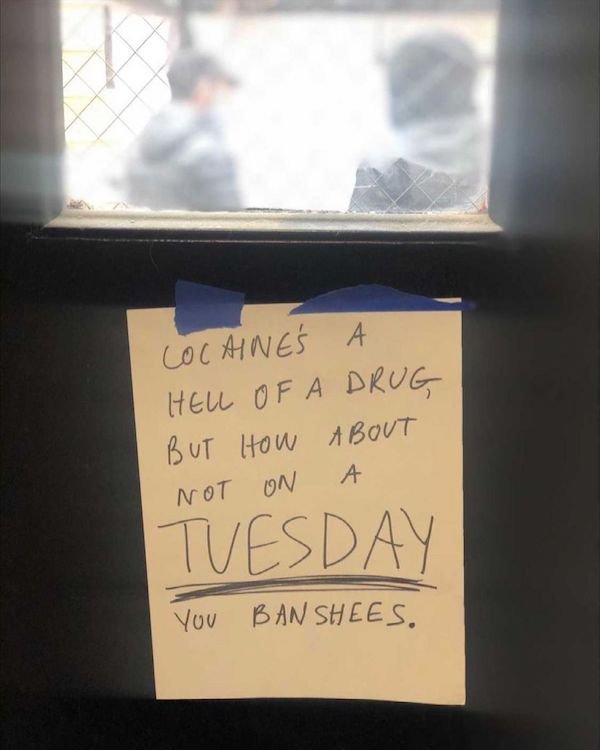 COCAINE'S A
HELL OF A DRUG,
BUT HOW ABOUT
NOT ON A
TUESDAY
YOU BANSHEES.